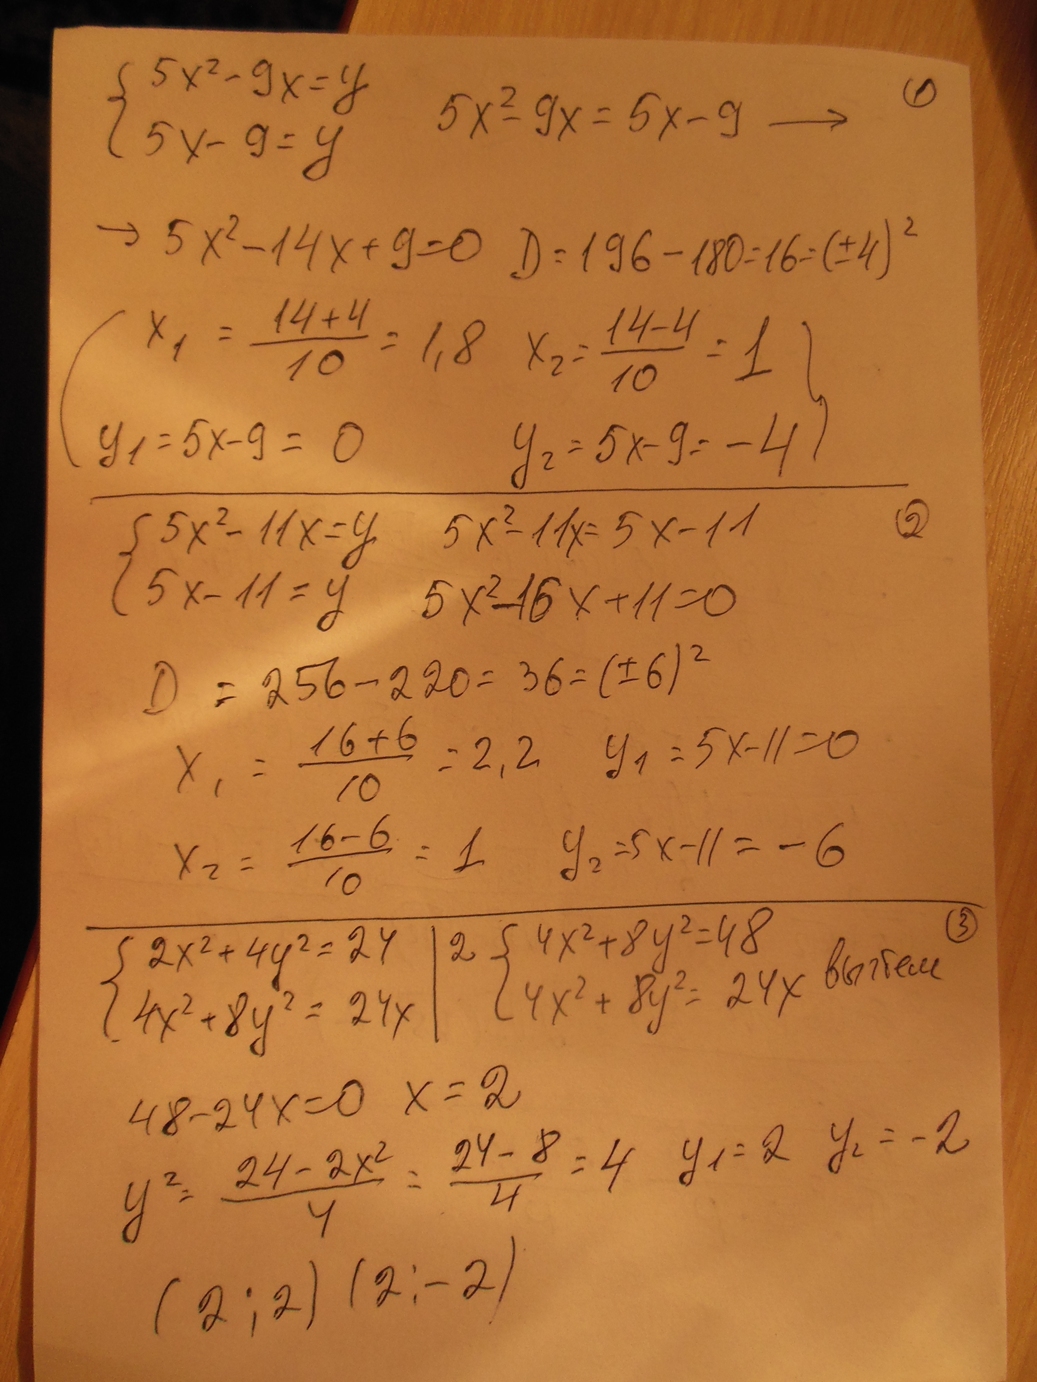 { 5x² - 9x = y 5x² - 9x = 5x - 9 → ①
5x - 9 = y
→ 5x² - 14x + 9 = 0 D = 196 - 180 = 16 = (±4)²
x₁ = (14+4)/10 = 1,8 x₂ = (14-4)/10 = 1
y₁ = 5x - 9 = 0 y₂ = 5x - 9 = -4
{ 5x² - 11x = y 5x² - 11x = 5x - 11 ②
5x - 11 = y 5x² - 16x + 11 = 0
D = 256 - 220 = 36 = (±6)²
x₁ = (16+6)/10 = 2,2 y₁ = 5x - 11 = 0
x₂ = (16-6)/10 = 1 y₂ = 5x - 11 = -6
{ 2x² + 4y² = 24 | 2 { 4x² + 8y² = 48 ③
4x² + 8y² = 24x | 4x² + 8y² = 24x вычтем
48 - 24x = 0 x = 2
y² = (24 - 2x²)/4 = (24 - 8)/4 = 4 y₁ = 2 y₂ = -2
(2; 2) (2; -2)